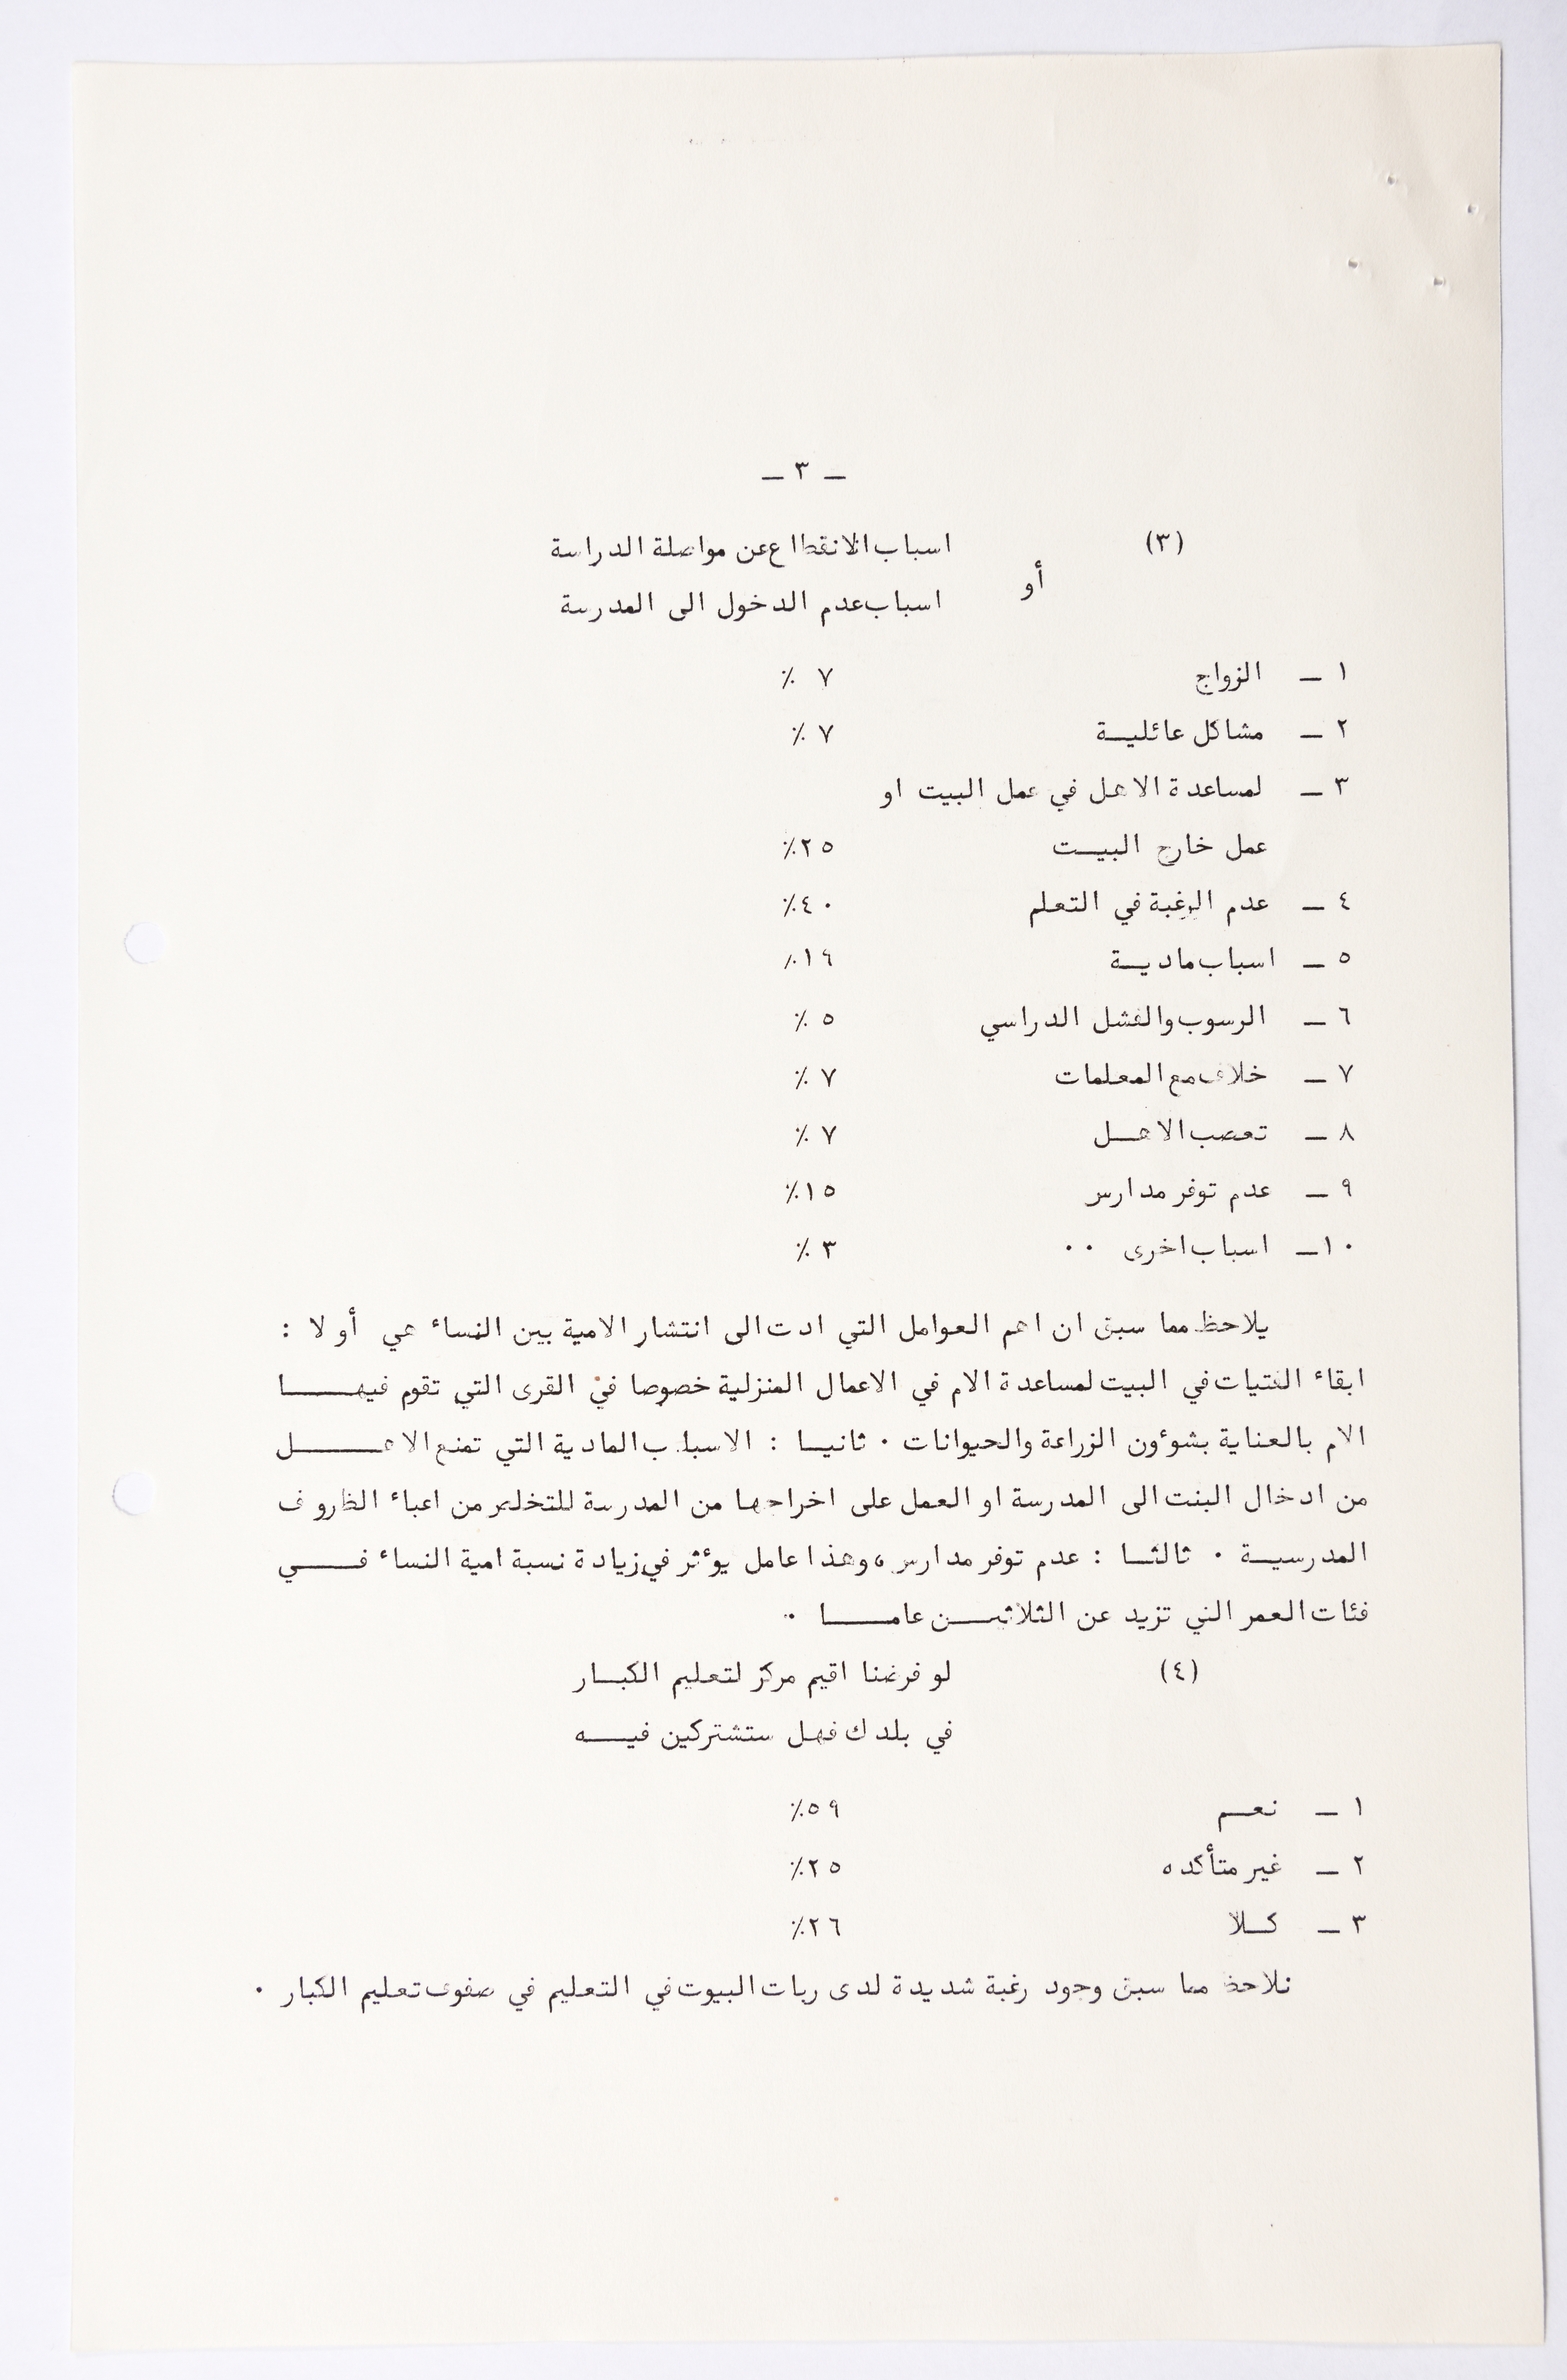 — ٣ —
(٣) اسباب الانقطاع عن مواصلة الدراسة
أو
اسباب عدم الدخول الى المدرسة
١ — الزواج ٧ ٪
٢ — مشاكل عائليـة ٧ ٪
٣ — لمساعدة الاهل في عمل البيت او
عمل خارج البيـت ٢٥٪
٤ — عدم الرغبة في التعلم ٤٠٪
٥ — اسباب ماديـة ١٩٪
٦ — الرسوب والفشل الدراسي ٥ ٪
٧ — خلاف مع المعلمات ٧ ٪
٨ — تعصب الاهـل ٧ ٪
٩ — عدم توفر مدارس ١٥٪
١٠— اسباب اخرى ٠٠ ٣ ٪
يلاحظ مما سبق ان اهم العوامل التي ادت الى انتشار الامية بين النساء هي أولا :
ابقاء الفتيات في البيت لمساعدة الام في الاعمال المنزلية خصوصا في القرى التي تقوم فيهـــا
الام بالعناية بشوءون الزراعة والحيوانات ٠ ثانيـا : الاسباب المادية التي تمنع الاهـــل
من ادخال البنت الى المدرسة او العمل على اخراجها من المدرسة للتخلص من اعباء الظروف
المدرسيـة ٠ ثالثـا : عدم توفر مدارس ، وهذا عامل يوءثر في زيادة نسبة امية النساء فـــي
فئات العمر التي تزيد عن الثلاثيـن عامـــا ٠
(٤) لو فرضنا اقيم مركز لتعليم الكبـار
في بلدك فهل ستشتركين فيـــه
١ — نعـم ٥٩٪
٢ — غير متأكده ٢٥٪
٣ — كـلا ٢٦٪
نلاحظ مما سبق وجود رغبة شديدة لدى ربات البيوت في التعليم في صفوف تعليم الكبار ٠